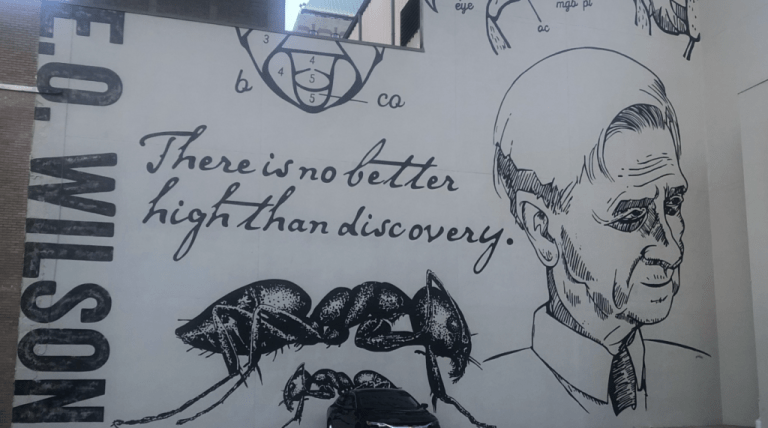 eye
mgb pl
oc
3
4
4
5
5
b
ca
E.O. WILSON
There is no better
high than discovery.